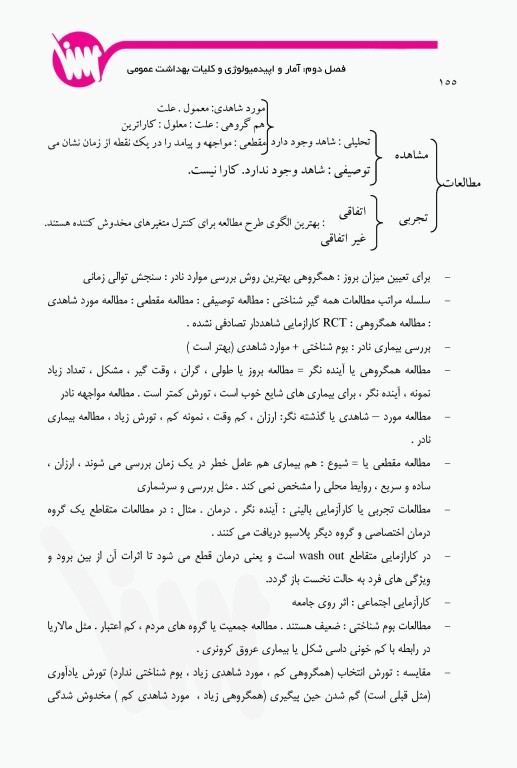 فصل دوم: آمار و اپیدمیولوژی و کلیات بهداشت عمومی
۱۵۵
مورد شاهدی: معمول . علت
هم گروهی : علت : معلول : کاراترین
تحلیلی : شاهد وجود دارد
مقطعی : مواجهه و پیامد را در یک نقطه از زمان نشان می
مشاهده
توصیفی : شاهد وجود ندارد. کارا نیست.
مطالعات
اتفاقی
تجربی
: بهترین الگوی طرح مطالعه برای کنترل متغیرهای مخدوش کننده هستند.
غیر اتفاقی
– برای تعیین میزان بروز : همگروهی بهترین روش بررسی موارد نادر : سنجش توالی زمانی
– سلسله مراتب مطالعات همه گیر شناختی : مطالعه توصیفی : مطالعه مقطعی : مطالعه مورد شاهدی
: مطالعه همگروهی : RCT کارازمایی شاهددار تصادفی نشده .
– بررسی بیماری نادر : بوم شناختی + موارد شاهدی (بهتر است )
– مطالعه همگروهی یا آینده نگر = مطالعه بروز یا طولی ، گران ، وقت گیر ، مشکل ، تعداد زیاد
نمونه ، آینده نگر ، برای بیماری های شایع خوب است ، تورش کمتر است . مطالعه مواجهه نادر
– مطالعه مورد – شاهدی یا گذشته نگر: ارزان ، کم وقت ، نمونه کم ، تورش زیاد ، مطالعه بیماری
نادر .
– مطالعه مقطعی یا = شیوع : هم بیماری هم عامل خطر در یک زمان بررسی می شوند ، ارزان ،
ساده و سریع ، روایط محلی را مشخص نمی کند . مثل بررسی و سرشماری
– مطالعات تجربی یا کارآزمایی بالینی : آینده نگر . درمان . مثال : در مطالعات متقاطع یک گروه
درمان اختصاصی و گروه دیگر پلاسبو دریافت می کنند .
– در کارازمایی متقاطع wash out است و یعنی درمان قطع می شود تا اثرات آن از بین برود و
ویژگی های فرد به حالت نخست باز گردد.
– کارآزمایی اجتماعی : اثر روی جامعه
– مطالعات بوم شناختی : ضعیف هستند . مطالعه جمعیت یا گروه های مردم ، کم اعتبار . مثل مالاریا
در رابطه با کم خونی داسی شکل یا بیماری عروق کرونری .
– مقایسه : تورش انتخاب (همگروهی کم ، مورد شاهدی زیاد ، بوم شناختی ندارد) تورش یادآوری
(مثل قبلی است) گم شدن حین پیگیری (همگروهی زیاد ، مورد شاهدی کم ) مخدوش شدگی